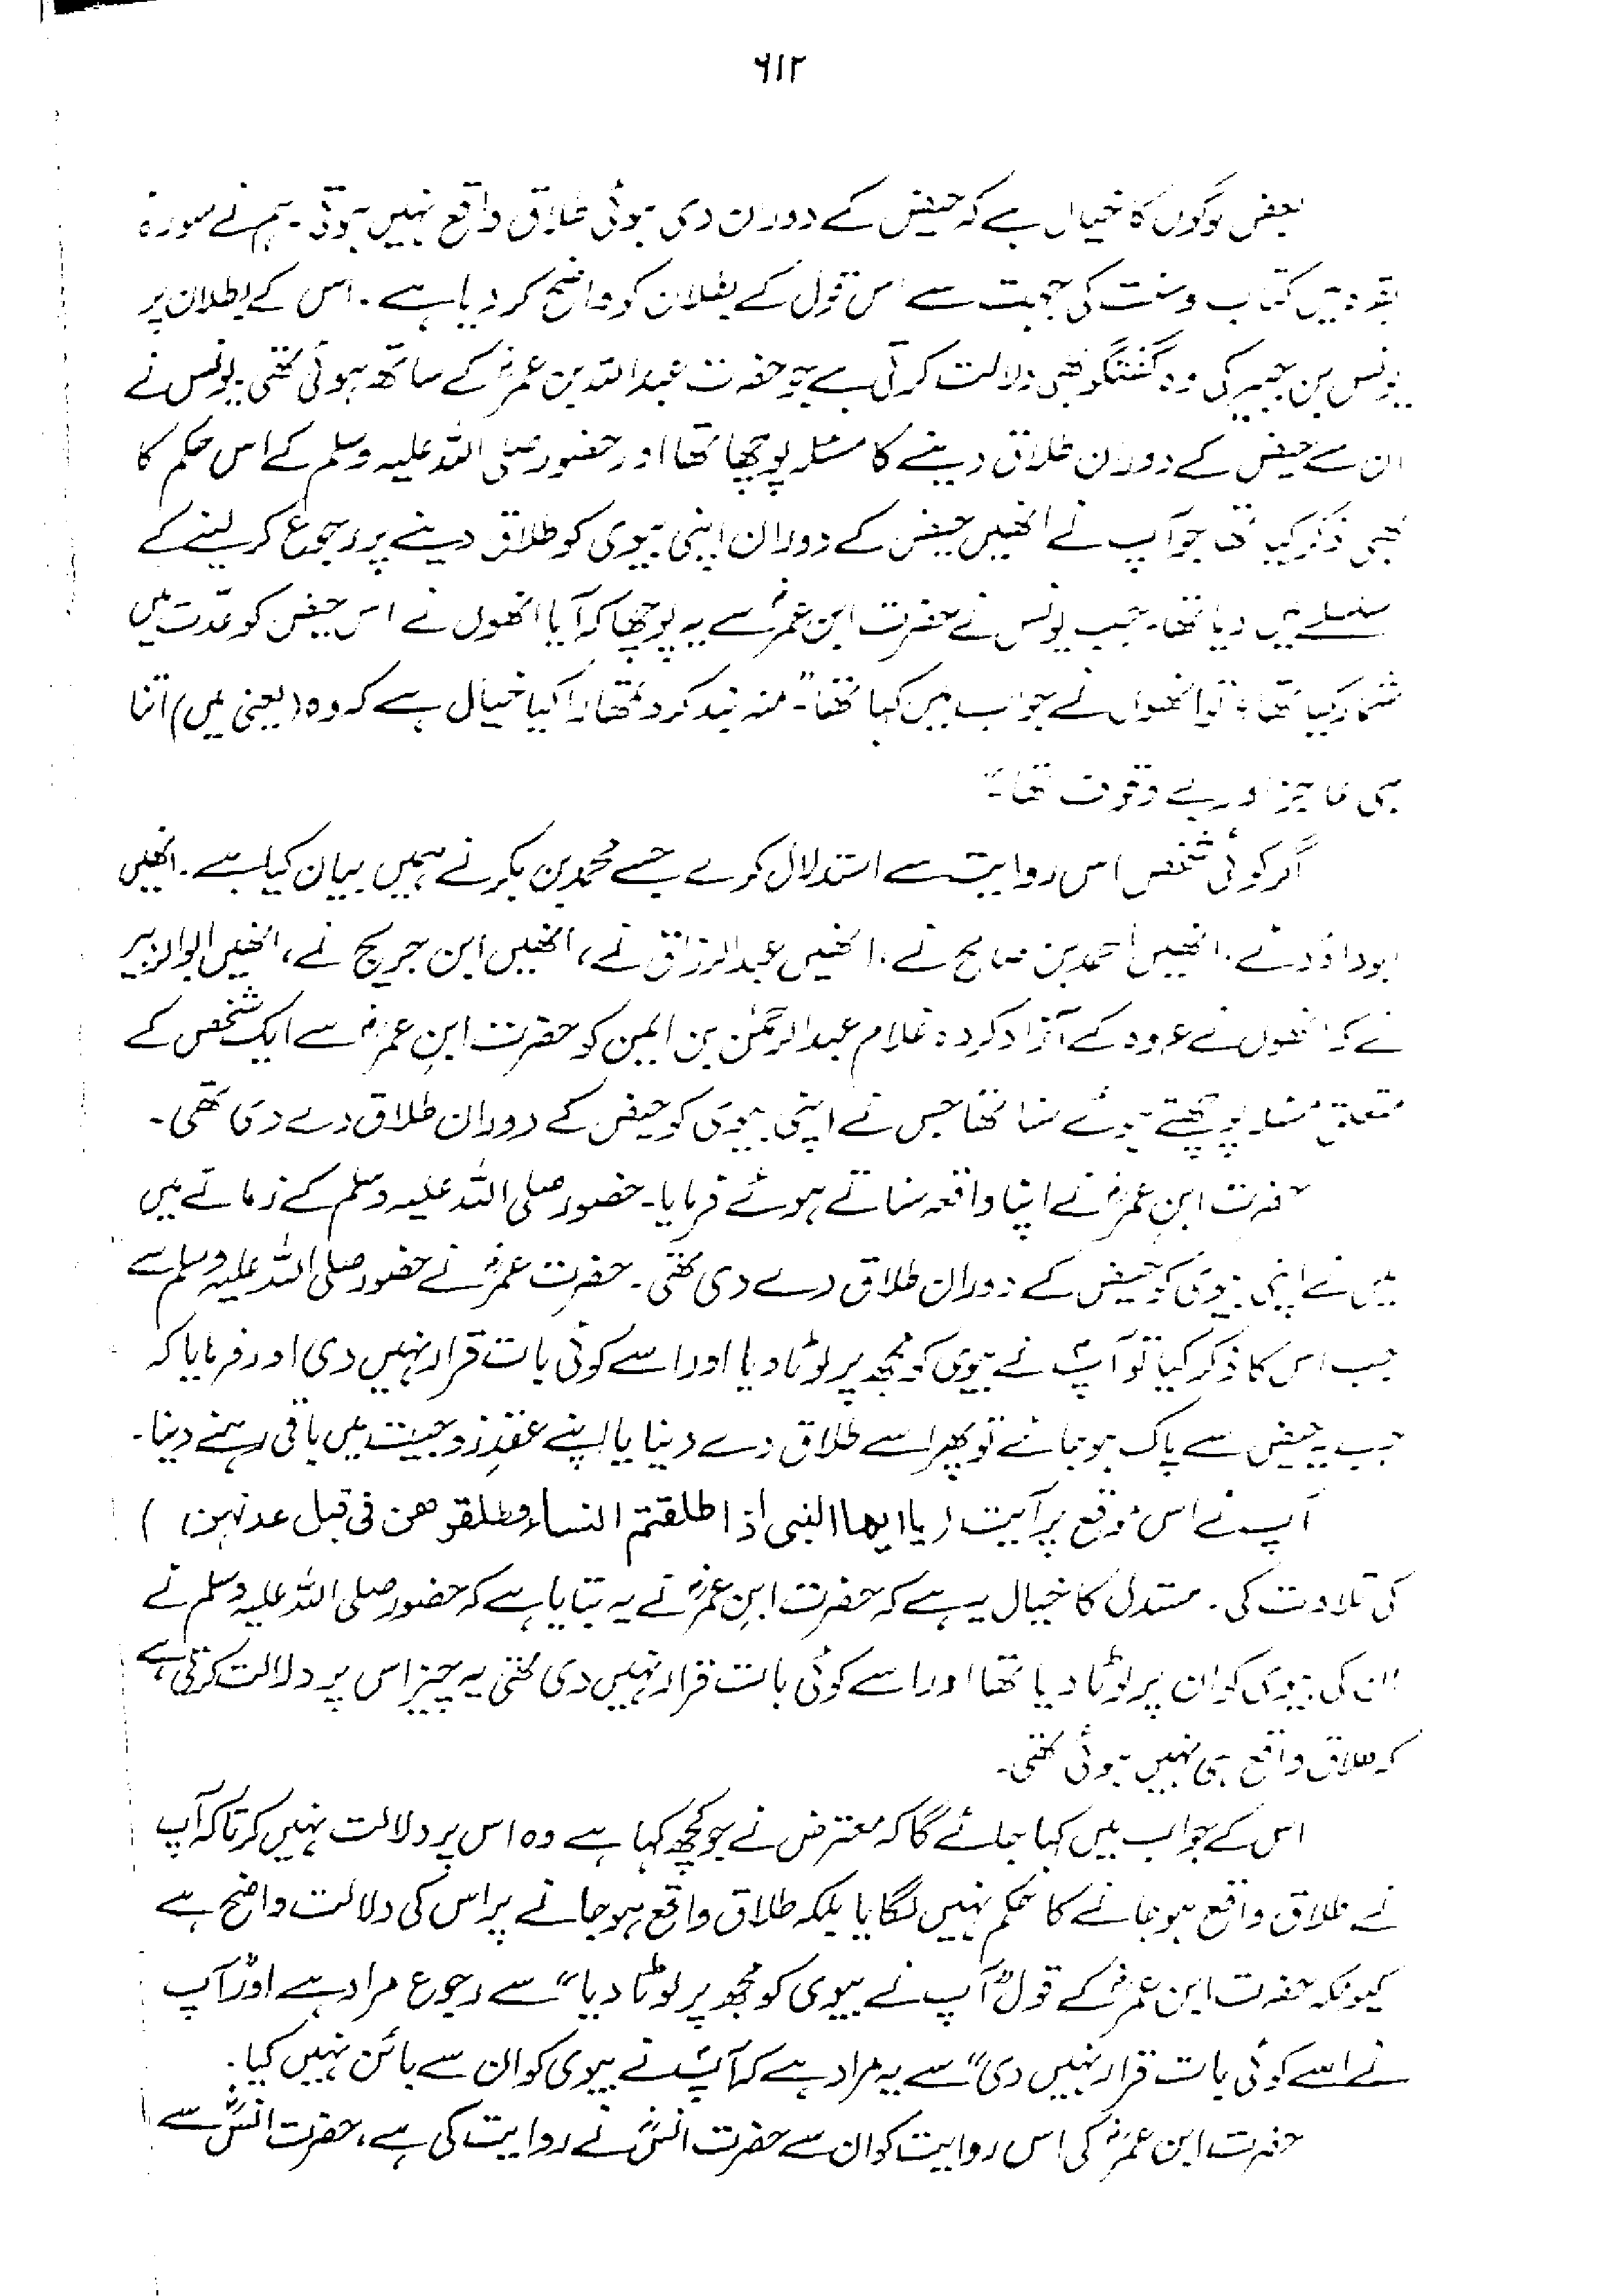 ۶۱۲
بعض لوگوں کا خیال ہے کہ حیض کے دوران دی ہوئی طلاق واقع نہیں ہوتی۔ ہم نے سورہ
بقرہ میں کتاب و سنت کی جہت سے اس قول کے بطلان کو واضح کر دیا ہے۔ اس کے بطلان پر
یونس بن جبیر کی وہ گفتگو بھی دلالت کرتی ہے جو حضرت عبداللہ بن عمرؓ کے ساتھ ہوئی تھی۔ یونس نے
ان سے حیض کے دوران طلاق دینے کا مسئلہ پوچھا تھا اور حضور صلی اللہ علیہ وسلم کے اس حکم کا
بھی ذکر کیا تھا جو آپ نے انھیں حیض کے دوران اپنی بیوی کو طلاق دینے پر رجوع کر لینے کے
سلسلے میں دیا تھا۔ جب یونس نے حضرت ابن عمرؓ سے یہ پوچھا کہ آیا انھوں نے اس حیض کو عدت میں
شمار کیا تھا؟ تو انھوں نے جواب میں کہا تھا۔ "منہ بند کرو تمھارا کیا خیال ہے کہ وہ (یعنی میں) اتنا
ہی عاجز اور بے وقوف تھا۔"
اگر کوئی شخص اس روایت سے استدلال کرے جسے محمد بن بکر نے ہمیں بیان کیا ہے۔ انھیں
ابوداؤد نے، انھیں احمد بن صالح نے، انھیں عبدالرزاق نے، انھیں ابن جریج نے، انھیں ابوالزبیر
نے کہ انھوں نے عروہ کے آزاد کردہ غلام عبدالرحمٰن بن ایمن کو حضرت ابنِ عمرؓ سے ایک شخص کے
متعلق مسئلہ پوچھتے ہوئے سنا تھا جس نے اپنی بیوی کو حیض کے دوران طلاق دے دی تھی۔
حضرت ابنِ عمرؓ نے اپنا واقعہ سناتے ہوئے فرمایا۔ حضور صلی اللہ علیہ وسلم کے زمانے میں
میں نے اپنی بیوی کو حیض کے دوران طلاق دے دی تھی۔ حضرت عمرؓ نے حضور صلی اللہ علیہ وسلم سے
جب اس کا ذکر کیا تو آپؐ نے بیوی کو مجھ پر لوٹا دیا اور اسے کوئی بات قرار نہیں دی اور فرمایا کہ
جب یہ حیض سے پاک ہو جائے تو پھر اسے طلاق دے دینا یا اپنے عقدِ زوجیت میں باقی رہنے دینا۔
آپ نے اس موقع پر آیت (یا ایھا النبی اذا طلقتم النساء فطلقوھن فی قبل عدتہن )
کی تلاوت کی۔ مستدل کا خیال یہ ہے کہ حضرت ابنِ عمرؓ نے یہ بتایا ہے کہ حضور صلی اللہ علیہ وسلم نے
ان کی بیوی کو ان پر لوٹا دیا تھا اور اسے کوئی بات قرار نہیں دی تھی یہ چیز اس پر دلالت کرتی ہے
کہ طلاق واقع ہی نہیں ہوئی تھی۔
اس کے جواب میں کہا جائے گا کہ معترض نے جو کچھ کہا ہے وہ اس پر دلالت نہیں کرتا کہ آپ
نے طلاق واقع ہو جانے کا حکم نہیں لگایا بلکہ طلاق واقع ہو جانے پر اس کی دلالت واضح ہے
کیونکہ حضرت ابن عمرؓ کے قول "آپ نے بیوی کو مجھ پر لوٹا دیا" سے رجوع مراد ہے اور "آپ
نے اسے کوئی بات قرار نہیں دی" سے یہ مراد ہے کہ آپؐ نے بیوی کو ان سے بائن نہیں کیا۔
حضرت ابن عمرؓ کی اس روایت کو ان سے حضرت انسؓ نے روایت کی ہے، حضرت انسؓ سے